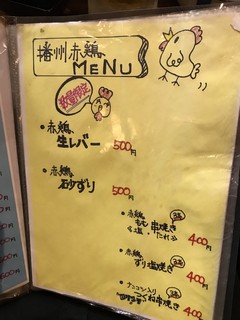 播州赤鶏
MENU
数量限定
・赤鶏
生レバー 500円
・赤鶏
砂ずり 500円
・赤鶏
もも串焼き 400円
・赤鶏
ずり塩焼き 400円
・ナンコツ入り
つくね串焼き 400円